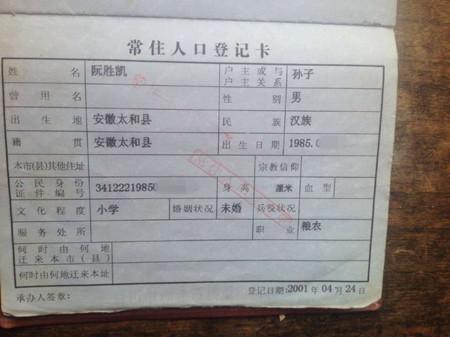 常住人口登记卡
姓名 阮胜凯 户主或与户主关系 孙子
曾用名 性别 男
出生地 安徽太和县 民族 汉族
籍贯 安徽太和县 出生日期 1985.0
本市(县)其他住址 宗教信仰
公民身份证件编号 34122219850 身高 厘米 血型
文化程度 小学 婚姻状况 未婚 兵役状况
服务处所 职业 粮农
何时由何地迁来本市(县)
何时由何地迁来本址
承办人签章: 登记日期:2001年04月24日